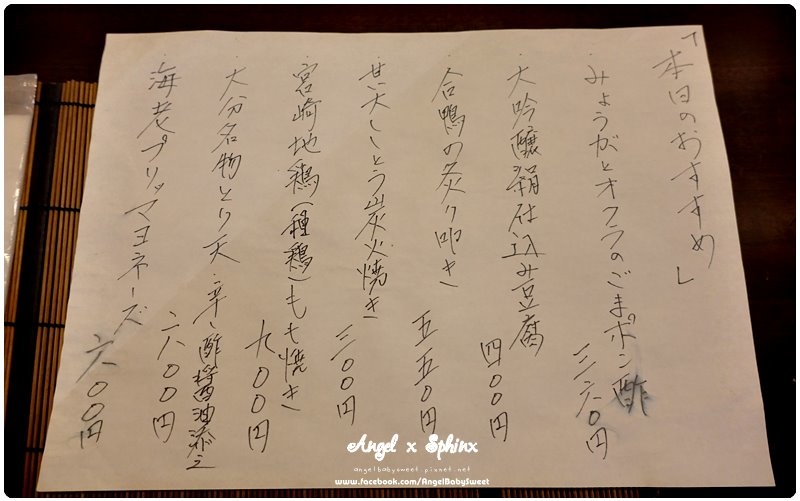 「本日のおすすめ」
・みょうがとオクラのごまポン酢
三六〇円
・大吟醸絹仕込み豆腐
四〇〇円
・合鴨の炙り叩き
五五〇円
・甚大ししとう炭火焼き
三〇〇円
・宮崎地鶏(種鶏)もも焼き
九〇〇円
・大分名物とり天 辛し酢醤油添え
六〇〇円
・海老プリップリマヨネーズ
六〇〇円
Angel x Sphinx
angelbabysweet.pixnet.net
www.facebook.com/AngelBabySweet